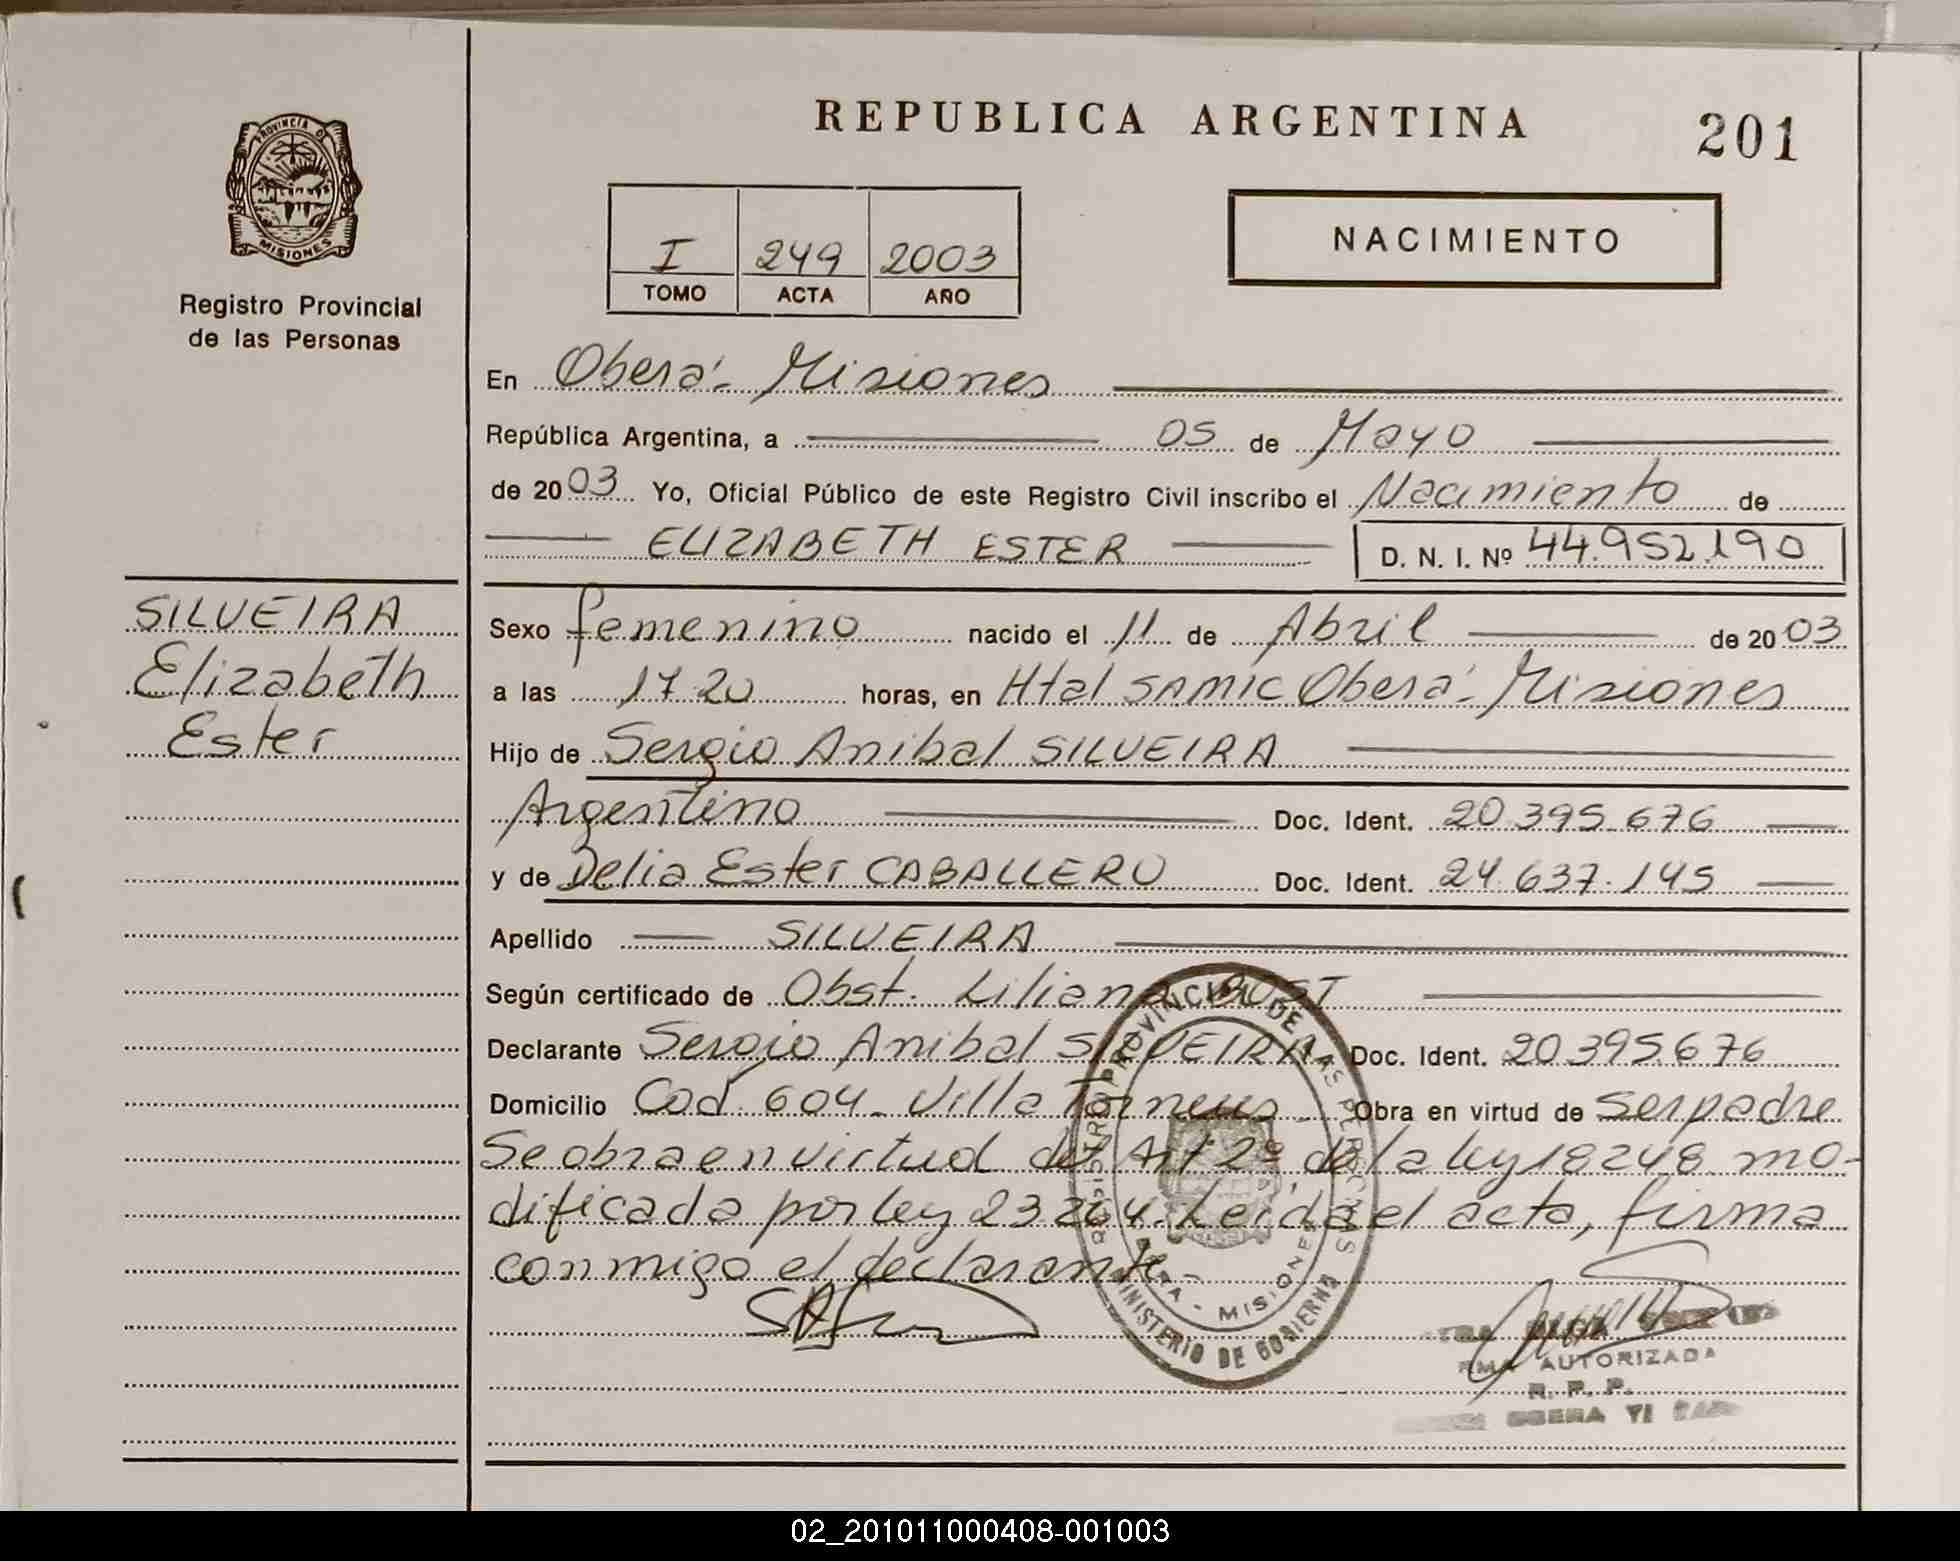 REPUBLICA ARGENTINA
201
PROVINCIA DE
MISIONES
Registro Provincial
de las Personas
I 249 2003
TOMO ACTA AÑO
NACIMIENTO
En Oberá - Misiones
República Argentina, a 05 de Mayo
de 2003 Yo, Oficial Público de este Registro Civil inscribo el Nacimiento de
ELIZABETH ESTER D. N. I. Nº 44.952.190
SILVEIRA
Elizabeth
Ester
Sexo femenino nacido el 11 de Abril de 2003
a las 17.20 horas, en Htal SAMIC Oberá - Misiones
Hijo de Sergio Anibal SILVEIRA
Argentino Doc. Ident. 20.395.676
y de Delia Ester CABALLERO Doc. Ident. 24.637.145
Apellido SILVEIRA
Según certificado de Obst. Liliana
Declarante Sergio Anibal SILVEIRA Doc. Ident. 20.395.676
Domicilio Cod. 604 - Villa Obra en virtud de Ser padre
Se obra en virtud del Art 2º de la ley 18248 mo-
dificada por ley 23264. Leída el acta, firma
conmigo el declarante
REGISTRO PROVINCIAL DE LAS PERSONAS
MISIONES
MINISTERIO DE GOBIERNO
AUTORIZADA
R. P. P.
02_201011000408-001003